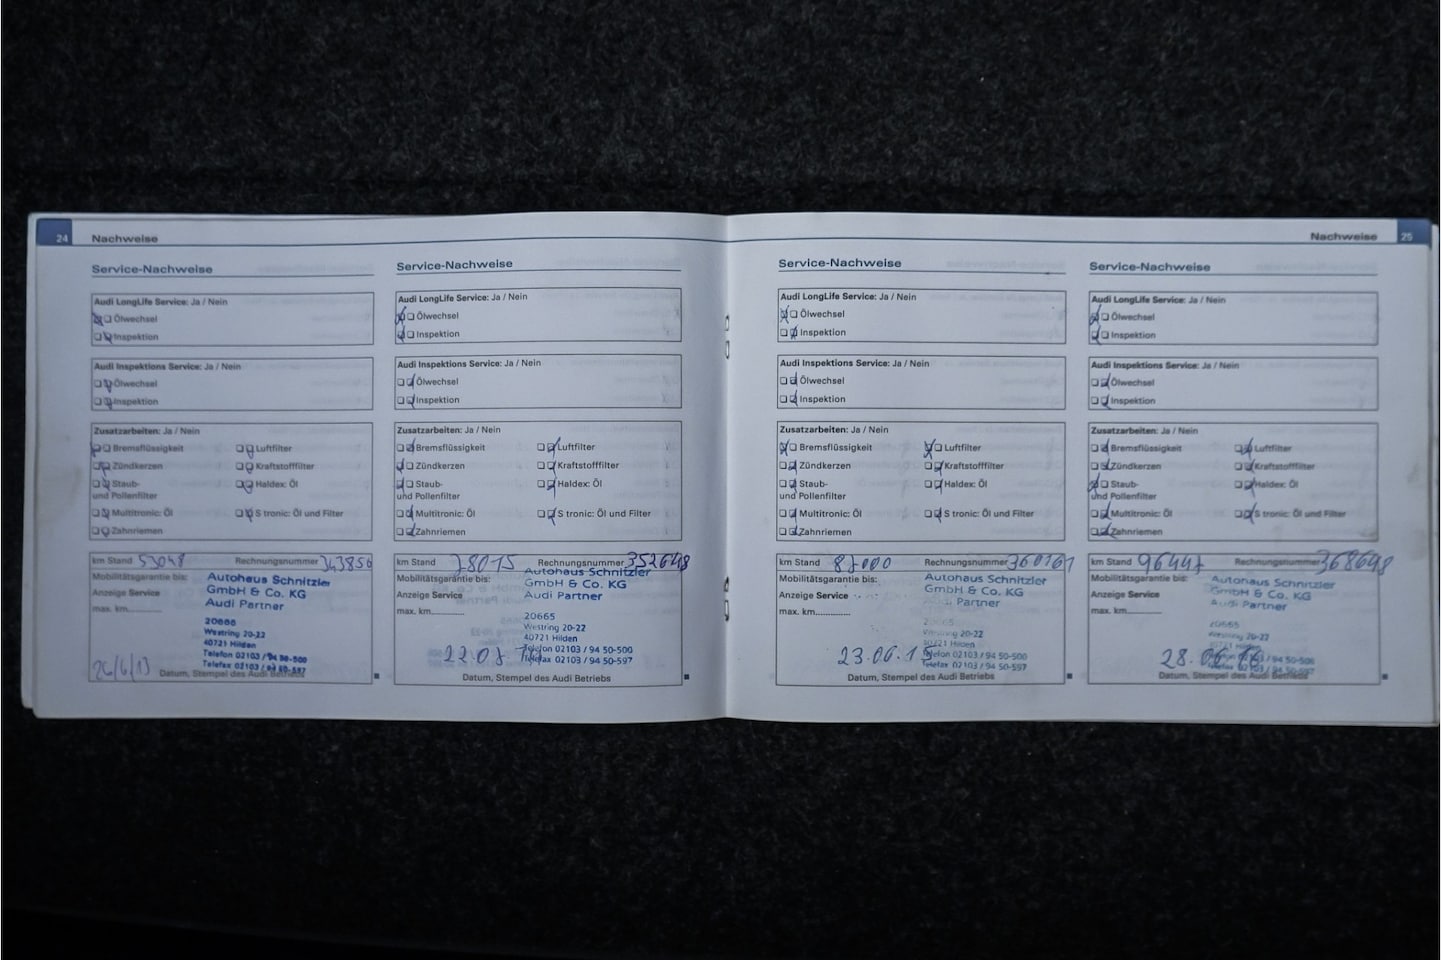 24 Nachweise
Service-Nachweise
Audi LongLife Service: Ja / Nein
Ölwechsel
Inspektion
Audi Inspektions Service: Ja / Nein
Ölwechsel
Inspektion
Zusatzarbeiten: Ja / Nein
Bremsflüssigkeit Luftfilter
Zündkerzen Kraftstofffilter
Staub- Haldex: Öl
und Pollenfilter
Multitronic: Öl S tronic: Öl und Filter
Zahnriemen
km Stand Rechnungsnummer 343856
Mobilitätsgarantie bis:
Anzeige Service
max. km
Autohaus Schnitzler
GmbH & Co. KG
Audi Partner
20665
Westring 20-22
40721 Hilden
Telefon 02103 / 94 50-500
Telefax 02103 / 94 50-597
26/6/13
Datum, Stempel des Audi Betriebs
Service-Nachweise
Audi LongLife Service: Ja / Nein
Ölwechsel
Inspektion
Audi Inspektions Service: Ja / Nein
Ölwechsel
Inspektion
Zusatzarbeiten: Ja / Nein
Bremsflüssigkeit Luftfilter
Zündkerzen Kraftstofffilter
Staub- Haldex: Öl
und Pollenfilter
Multitronic: Öl S tronic: Öl und Filter
Zahnriemen
km Stand 78015 Rechnungsnummer 352648
Mobilitätsgarantie bis:
Anzeige Service
max. km
Autohaus Schnitzler
GmbH & Co. KG
Audi Partner
20665
Westring 20-22
40721 Hilden
Telefon 02103 / 94 50-500
Telefax 02103 / 94 50-597
Datum, Stempel des Audi Betriebs
Nachweise 25
Service-Nachweise
Audi LongLife Service: Ja / Nein
Ölwechsel
Inspektion
Audi Inspektions Service: Ja / Nein
Ölwechsel
Inspektion
Zusatzarbeiten: Ja / Nein
Bremsflüssigkeit Luftfilter
Zündkerzen Kraftstofffilter
Staub- Haldex: Öl
und Pollenfilter
Multitronic: Öl S tronic: Öl und Filter
Zahnriemen
km Stand 87000 Rechnungsnummer 360161
Mobilitätsgarantie bis:
Anzeige Service
max. km
Autohaus Schnitzler
GmbH & Co. KG
Audi Partner
20665
Westring 20-22
40721 Hilden
Telefon 02103 / 94 50-500
Telefax 02103 / 94 50-597
23.06.15
Datum, Stempel des Audi Betriebs
Service-Nachweise
Audi LongLife Service: Ja / Nein
Ölwechsel
Inspektion
Audi Inspektions Service: Ja / Nein
Ölwechsel
Inspektion
Zusatzarbeiten: Ja / Nein
Bremsflüssigkeit Luftfilter
Zündkerzen Kraftstofffilter
Staub- Haldex: Öl
und Pollenfilter
Multitronic: Öl S tronic: Öl und Filter
Zahnriemen
km Stand 96447 Rechnungsnummer 368648
Mobilitätsgarantie bis:
Anzeige Service
max. km
Autohaus Schnitzler
GmbH & Co. KG
Audi Partner
20665
Westring 20-22
40721 Hilden
Telefon 02103 / 94 50-500
Telefax 02103 / 94 50-597
Datum, Stempel des Audi Betriebs